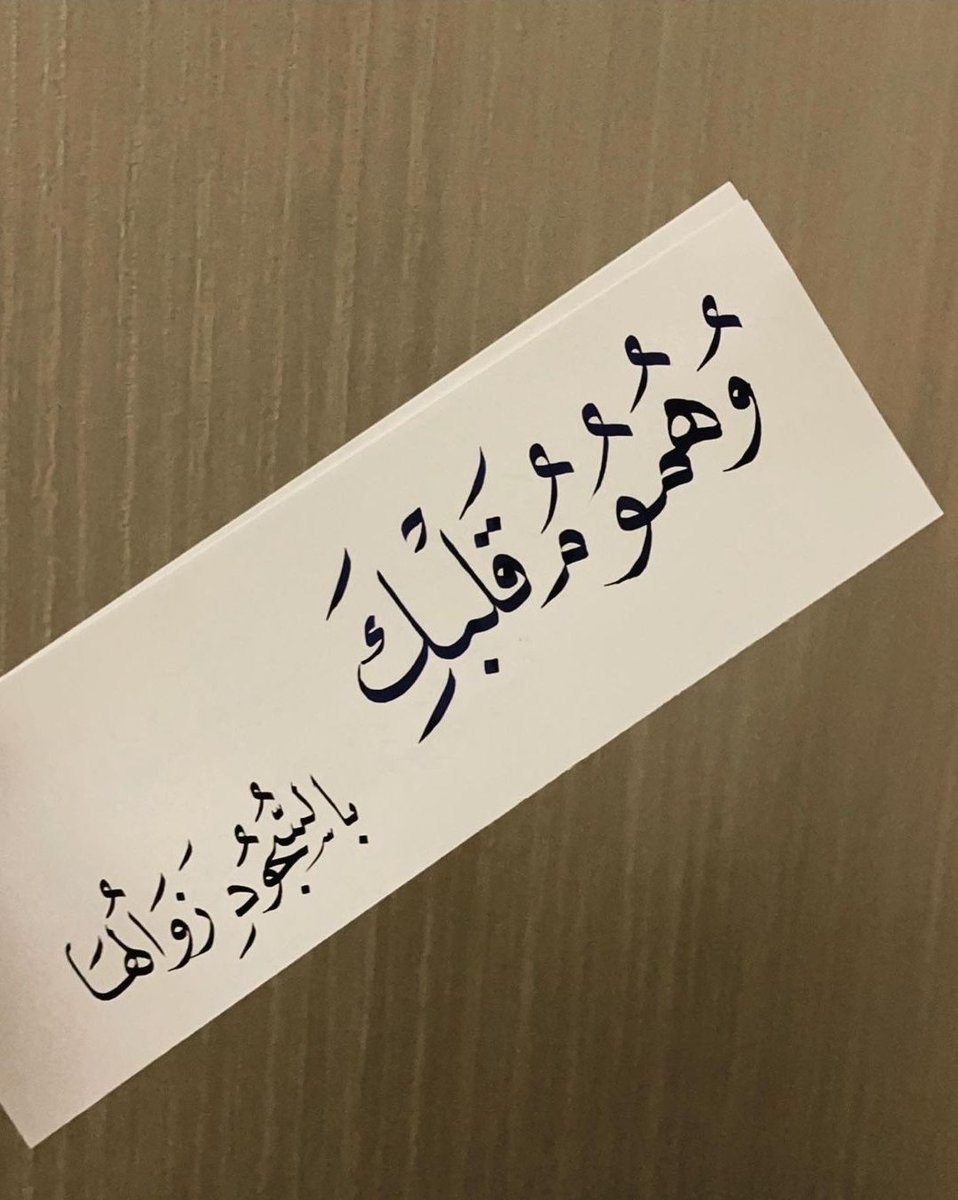 وُهُمُومُ قَلْبِكَ
بِالسُّجُودِ زَوَالُهَا